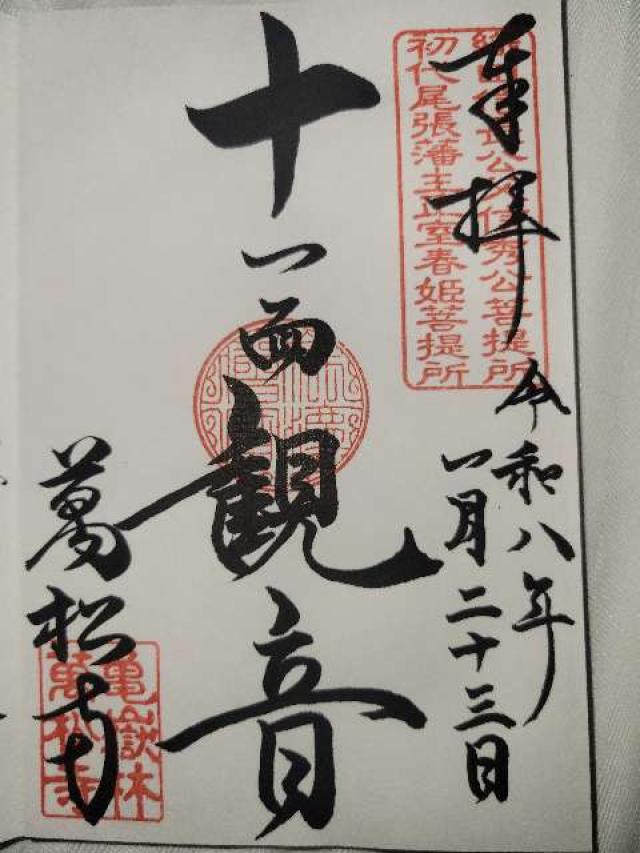 奉拝
令和八年
一月二十三日
織田信長公父信秀公菩提所
初代尾張藩主正室春姫菩提所
十一面観音
萬松寺
亀嶽林
萬松寺